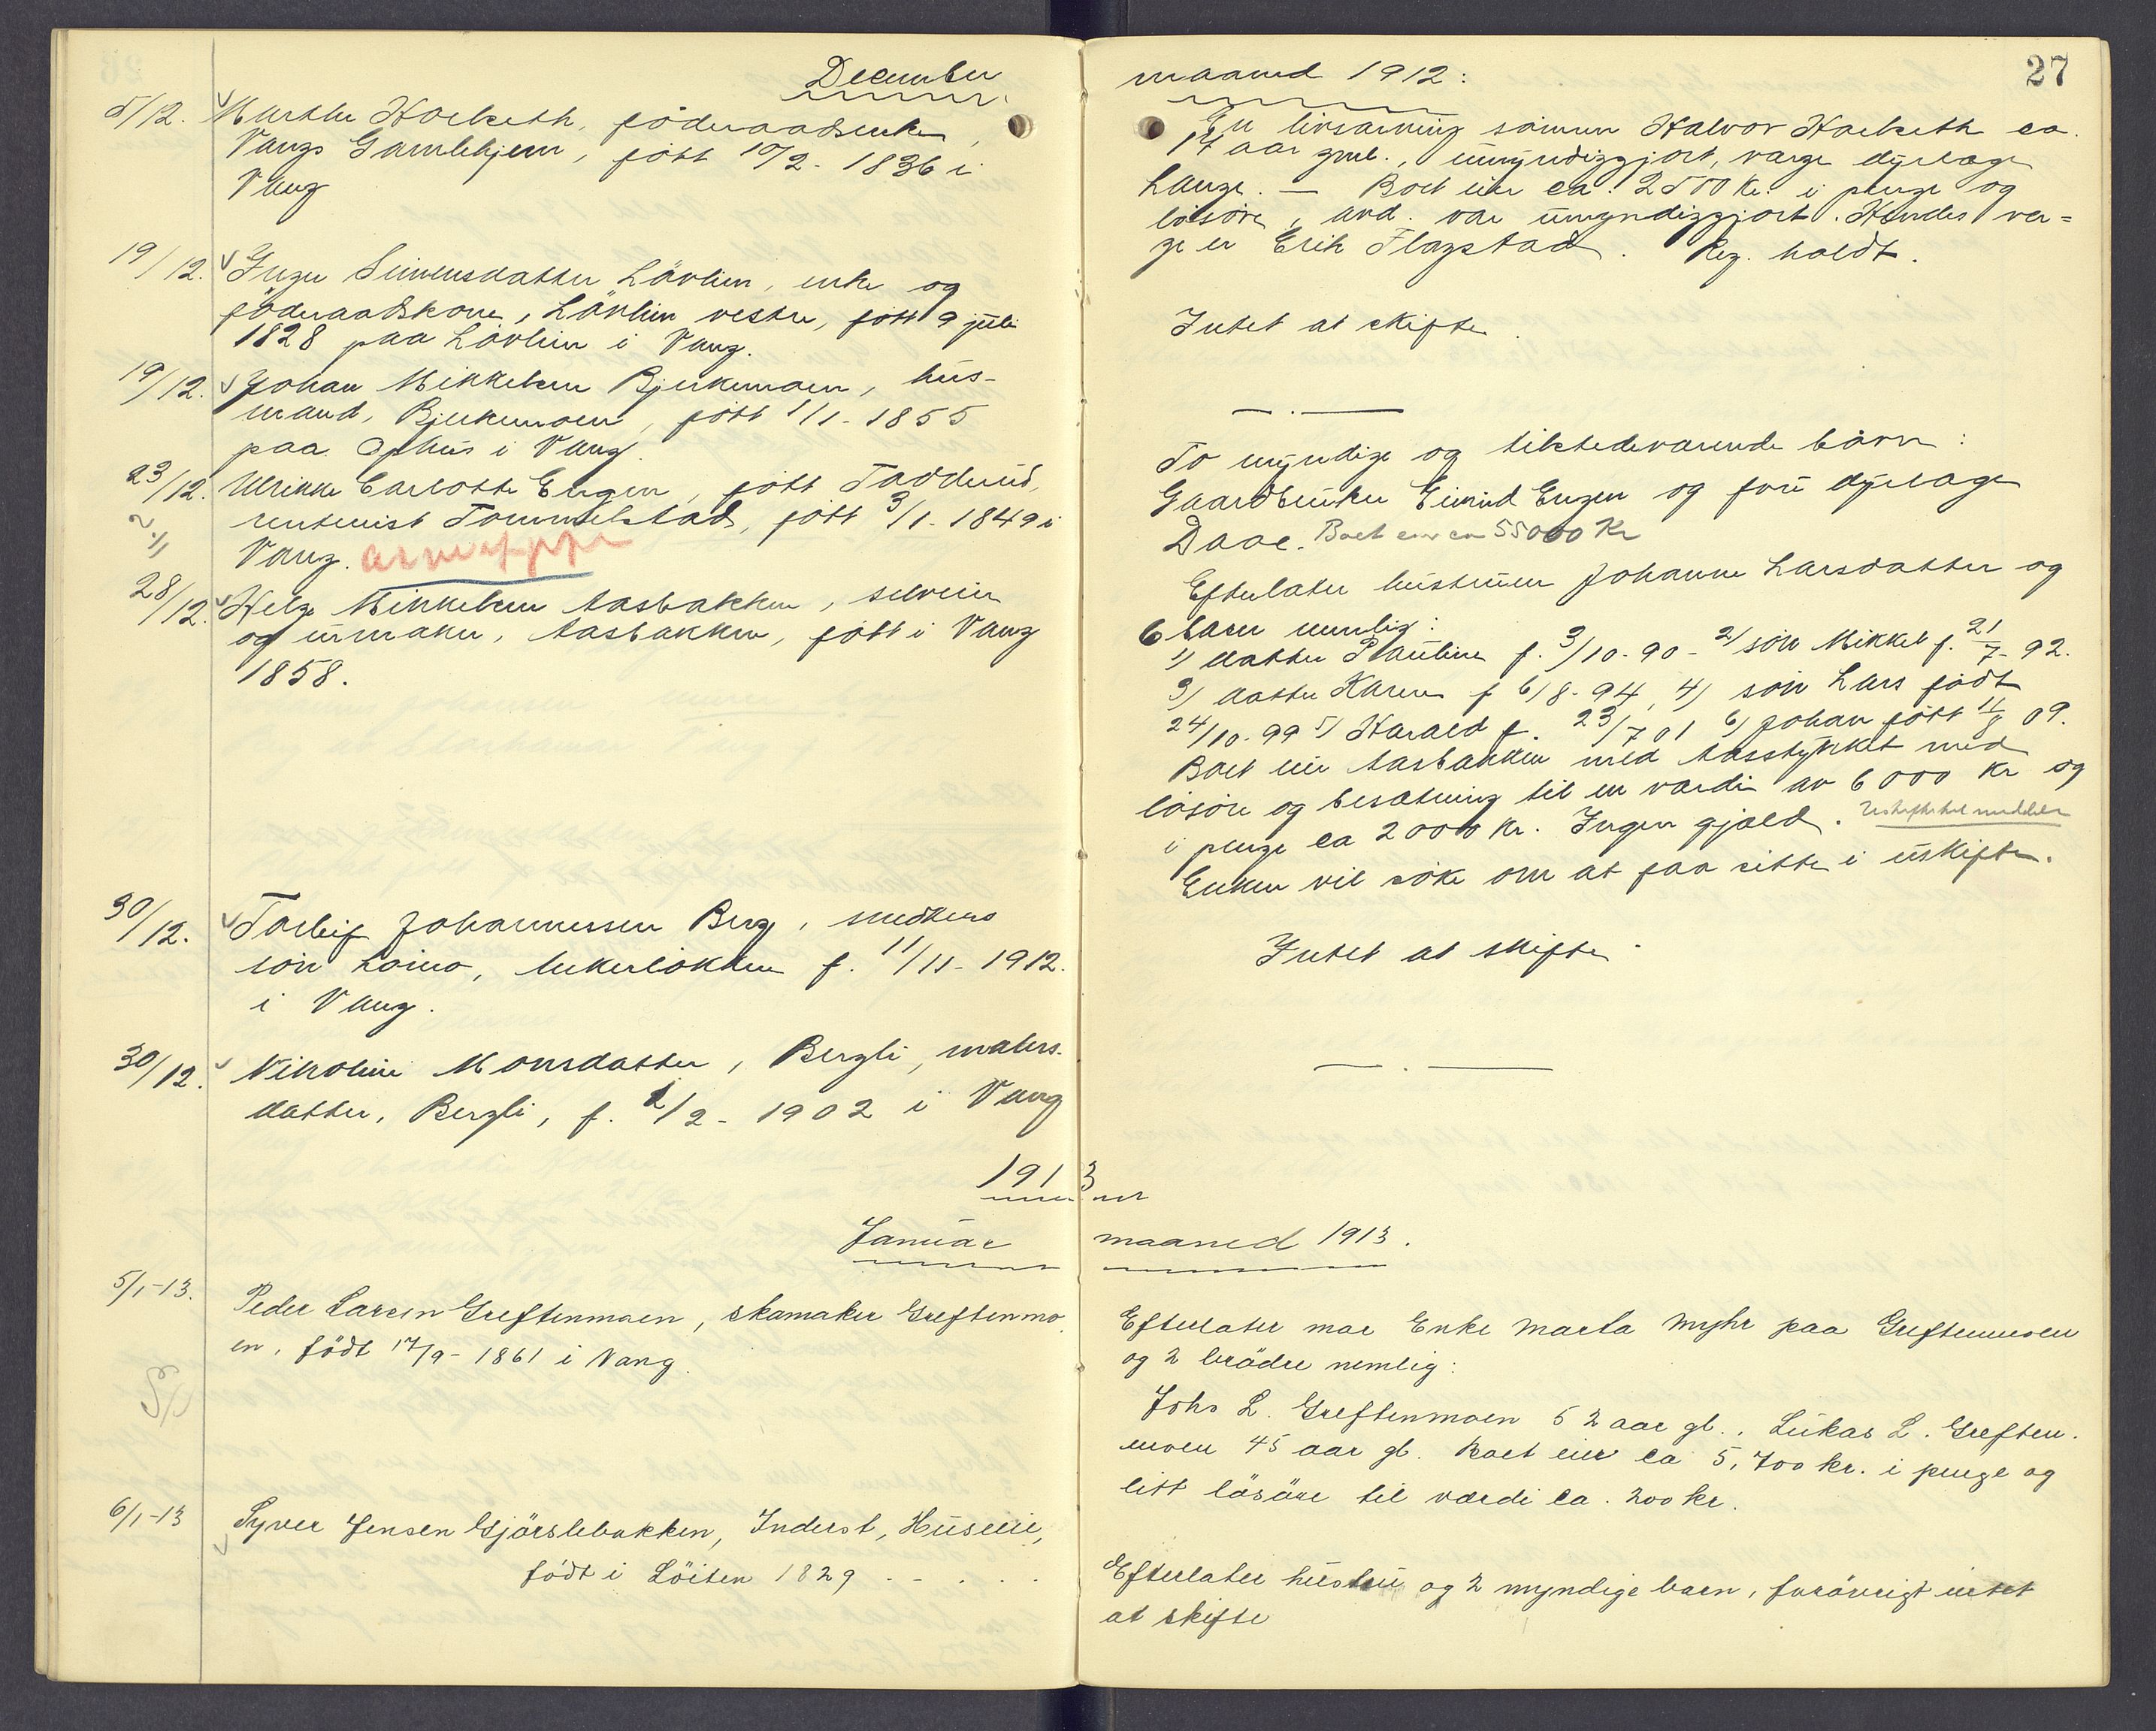 December
5/12. Marthe Hoelseth, föderaadsenke,
Vangs Gamlehjem, född 10/2 - 1836 i
Vang
19/12. Inger Simensdatter Lövlien, enke og
föderaadskone, Lövlien vestre, född 9 juli
1828 paa Lövlien i Vang.
19/12. Johan Mikkelsen Bjerkemoen, hus-
mand, Bjerkemoen, född 1/1 - 1855
paa Ophus i Vang.
23/12. Ulrikke Carlotte Engen, född Tadderud,
rentenist Tommelstad, född 3/1 - 1849 i
2/1
Vang.
28/12. Helge Mikkelsen Aasbakken, selveier
og urmaker, Aasbakken, född i Vang
1858.
30/12. Torleif Johannessen Berg, snedkers
sön, f. 11/11 - 1912.
i Vang.
30/12. Nikoline Monsdatter, Bergli, malers-
datter, Bergli, f. 2/2 - 1902 i Vang
1913
Januar
5/1-13. Peder Larsen Greftenmoen, skomaker Greftenmo
en, födt 17/9 - 1861 i Vang.
6/1-13 Syver Jensen Gjörslebakken, Inderst, Huseeie,
födt i Löiten 1829 - - . . .
27
maaned 1912:
En livsarving sönnen Halvor Hoelseth ca.
aar gml., umyndiggjort, verge dyrlæge
Lange. — Boet eier ca. 2500 Kr. i penge og
lösöre, avd. var umyndiggjort. Hendes ver=
ge er Erik Flagstad. Reg. holdt.
Intet at skifte.
— . —
To myndige og tilstedeværende börn:
Gaardbruker Eivind Engen og fru dyrlæge
Daae. Boet eier ca 55000 Kr
Efterlater hustruen Johanne Larsdatter og
6 barn nemlig:
1) datter Pauline f. 3/10-90 - 2) sön Mikkel f. 21/7-92.
3) datter Karen f 6/8-94, 4) sön Lars född
24/10-99 5) Harald f. 23/7 01 6) Johan född 11/8 09.
Boet eier Aasbakken med Aasstykket med
lösöre og besætning til en værdi av 6000 Kr og
i penge ca 2000 Kr. Ingen gjæld.
Enken vil söke om at faa sitte i uskifte.
Intet at skifte.
— . —
maaned 1913.
Efterlater mor Enke Marta Myhr paa Greftenmoen
og 2 brödre nemlig:
Johs L. Greftenmoen 52 aar gl., Lukas L. Greften.
moen 45 aar gl. Boet eier ca 5,700 kr. i penge og
litt lösöre til værdi ca. 200 kr.
Efterlater hustru og 2 myndige barn, forövrigt intet
at skifte